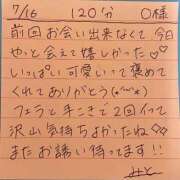 7/16 120分 O様
前回お会い出来なくて今日
やっと会えて嬉しかった♡♡
いっぱい可愛いって褒めて
くれてありがとう(*´`*)!!
フェラと手こきで2回イって
沢山気持ちよかったね♡♡
またお誘い待ってます!!
みと